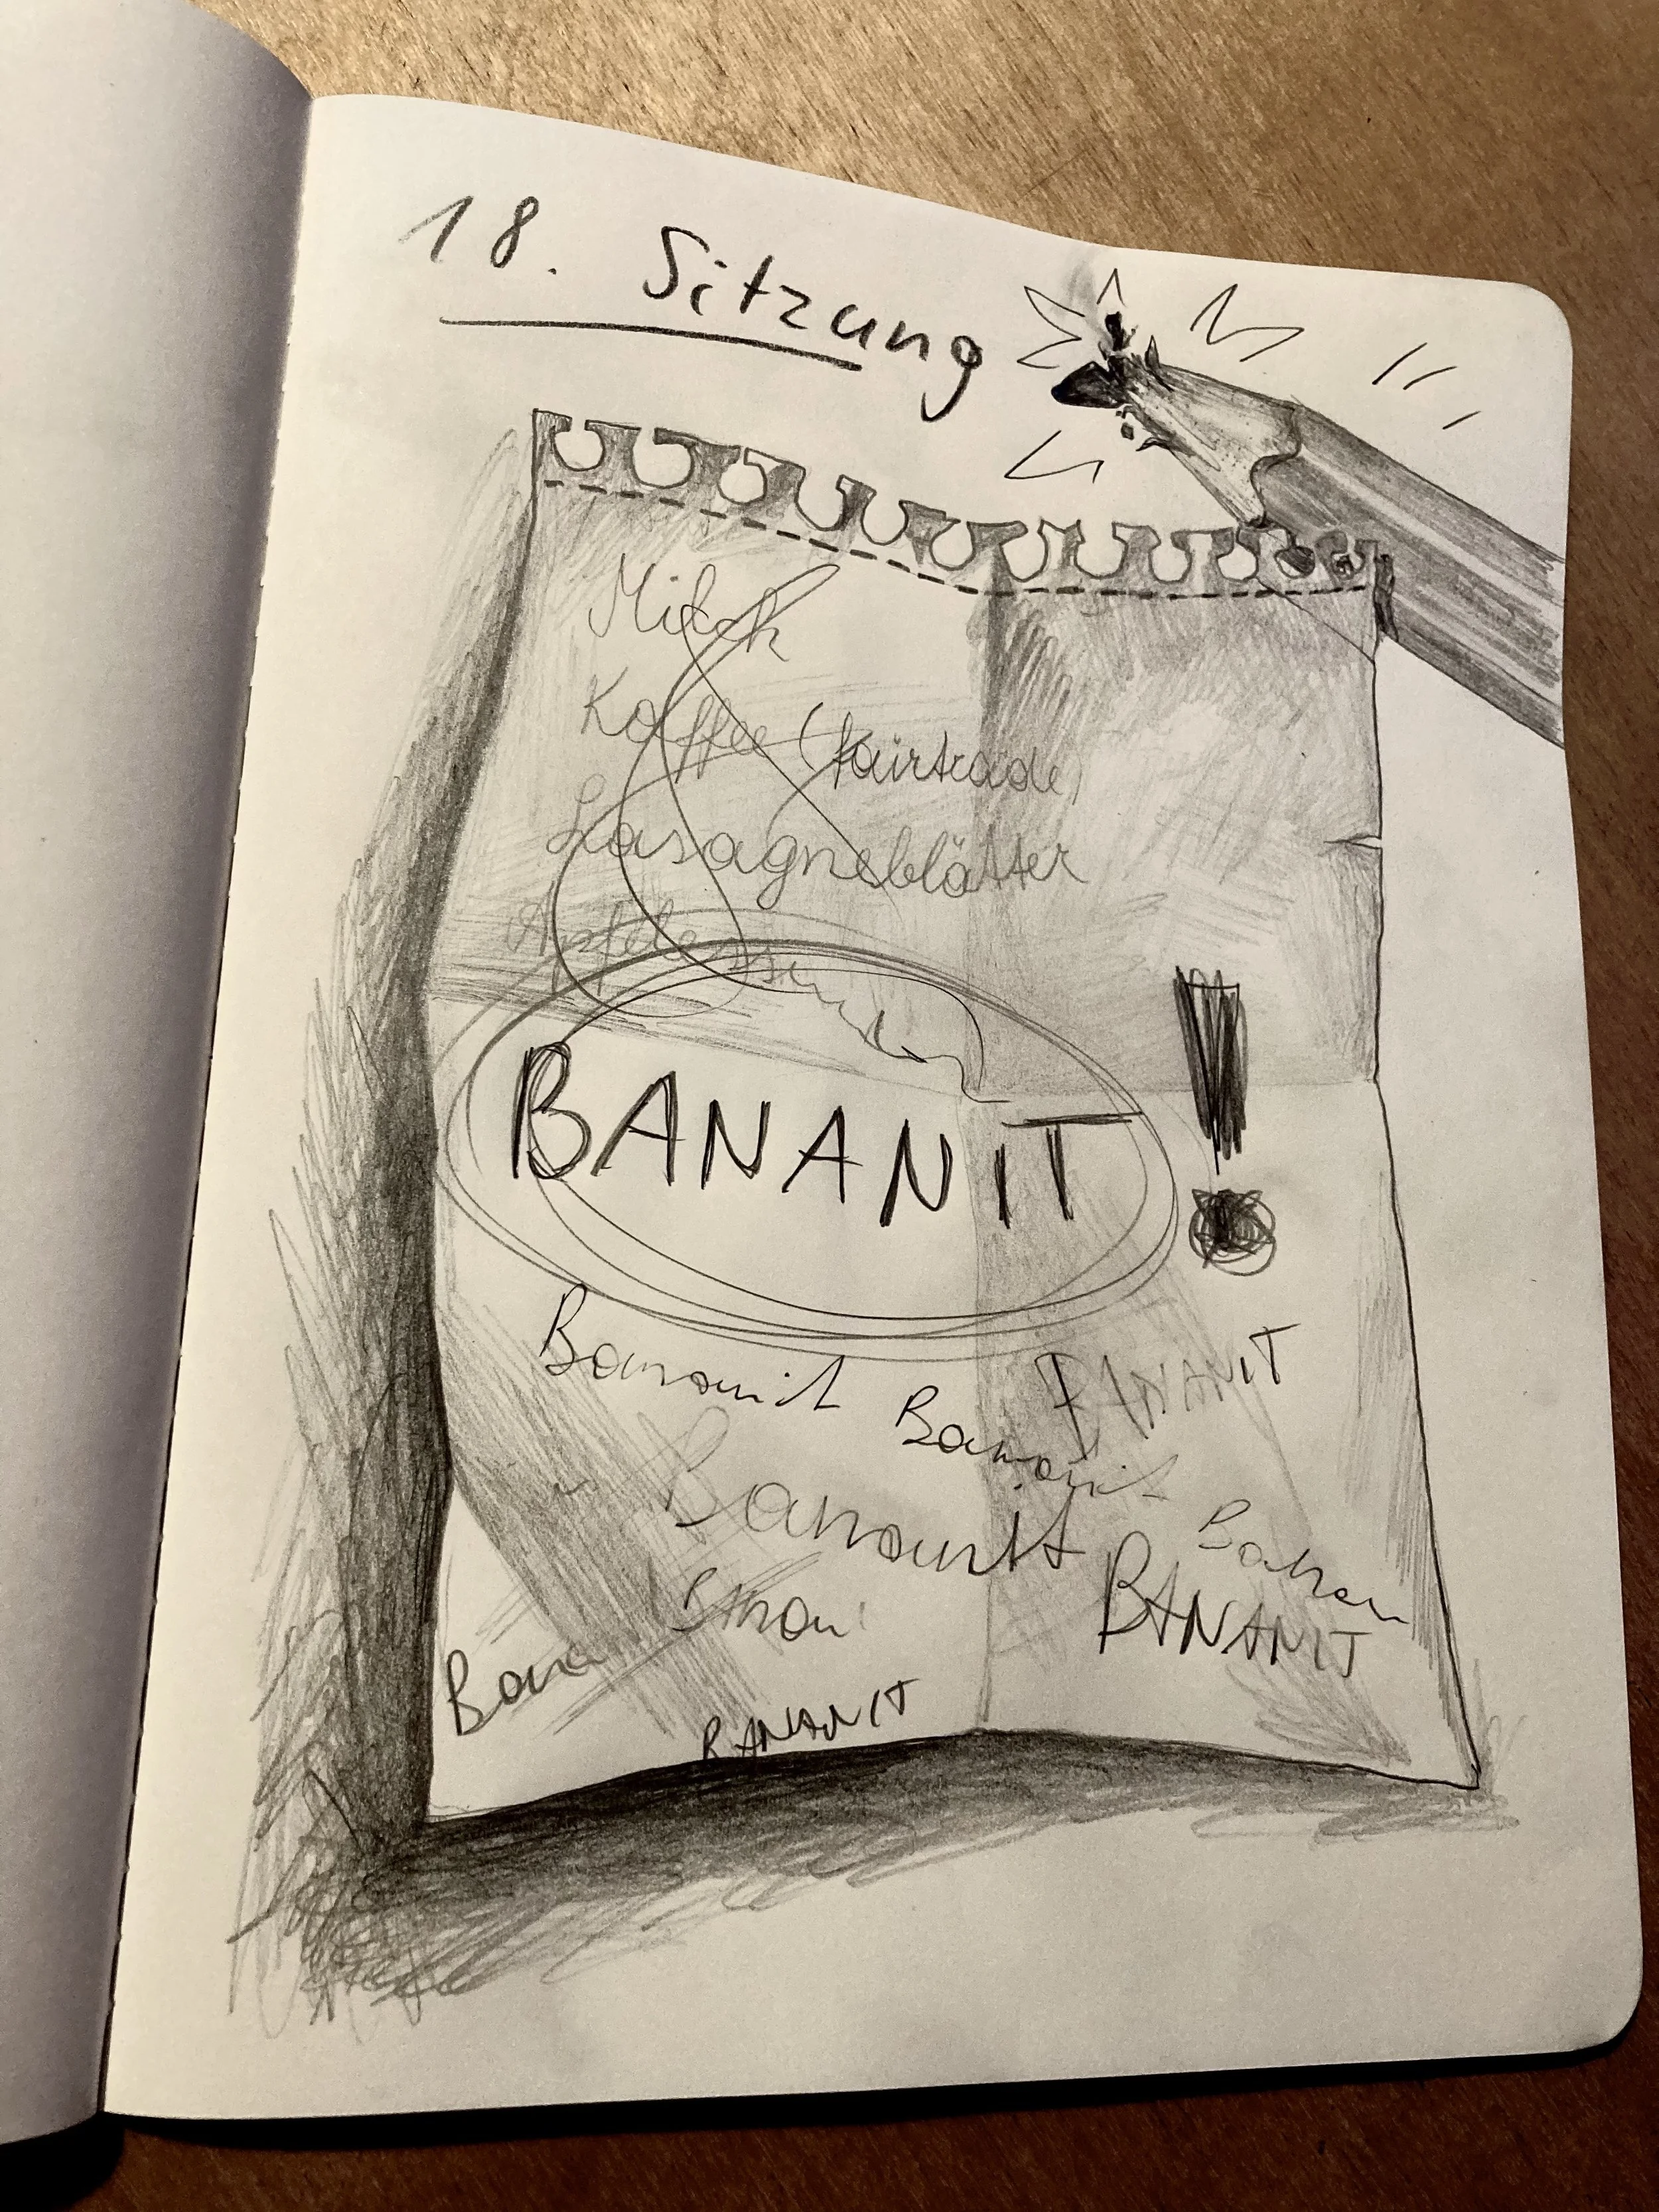 18. Sitzung
Milch
Kaffee (fairtrade)
Lasagneblätter
BANANIT !
Bananit
BANANIT
Bananit
Bananit
Banan
BANANIT
Bana
BANANIT